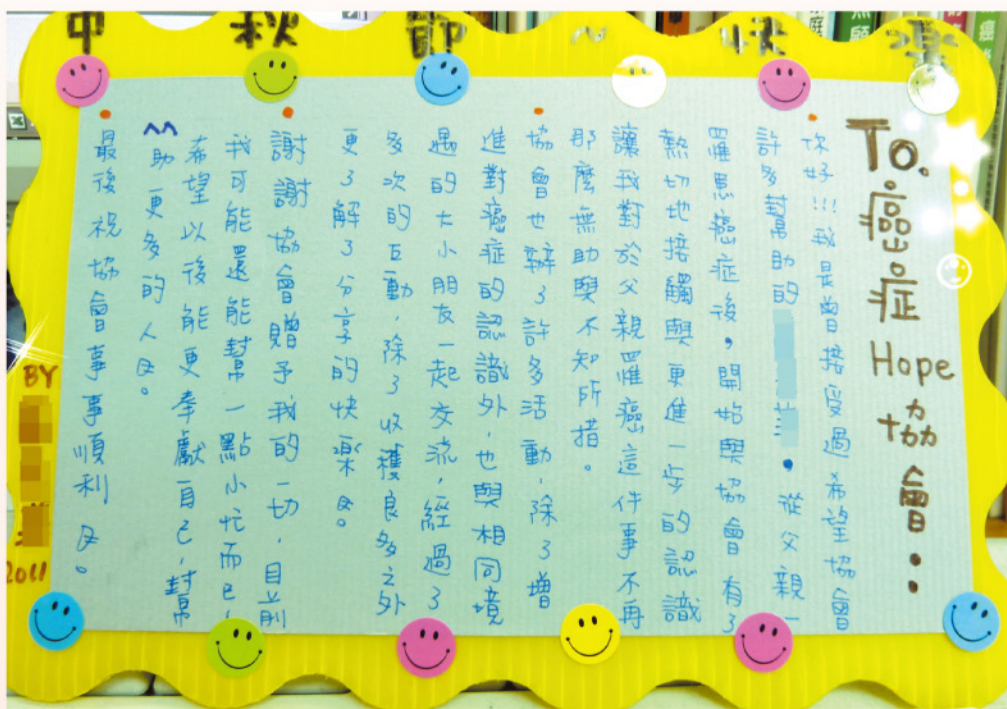 中秋節~快樂
To.癌症Hope協會..
你好!!!我是曾接受過希望協會
許多幫助的
。從父親一
罹患癌症後,開始與協會有了
熱切地接觸與更進一步的認識
讓我對於父親罹癌這件事不再
那麼無助與不知所措。
協會也辦了許多活動,除了增
進對癌症的認識外,也與相同境
遇的大小朋友一起交流,經過了
多次的互動,除了收穫良多之外
更了解了分享的快樂
謝謝協會贈予我的一切,目前
我可能還能幫一點小忙而已,
希望以後能更奉獻自己,幫
助更多的人
^^
最後祝協會事事順利
BY
2011